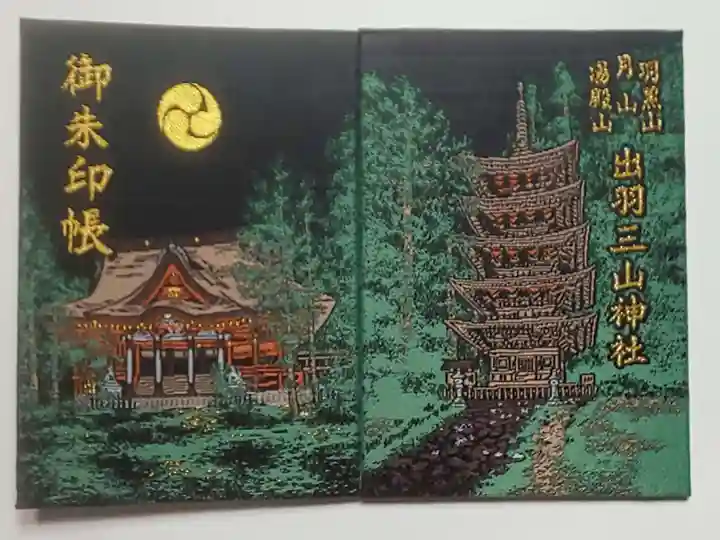 御朱印帳
羽黒山
月山
湯殿山
出羽三山神社